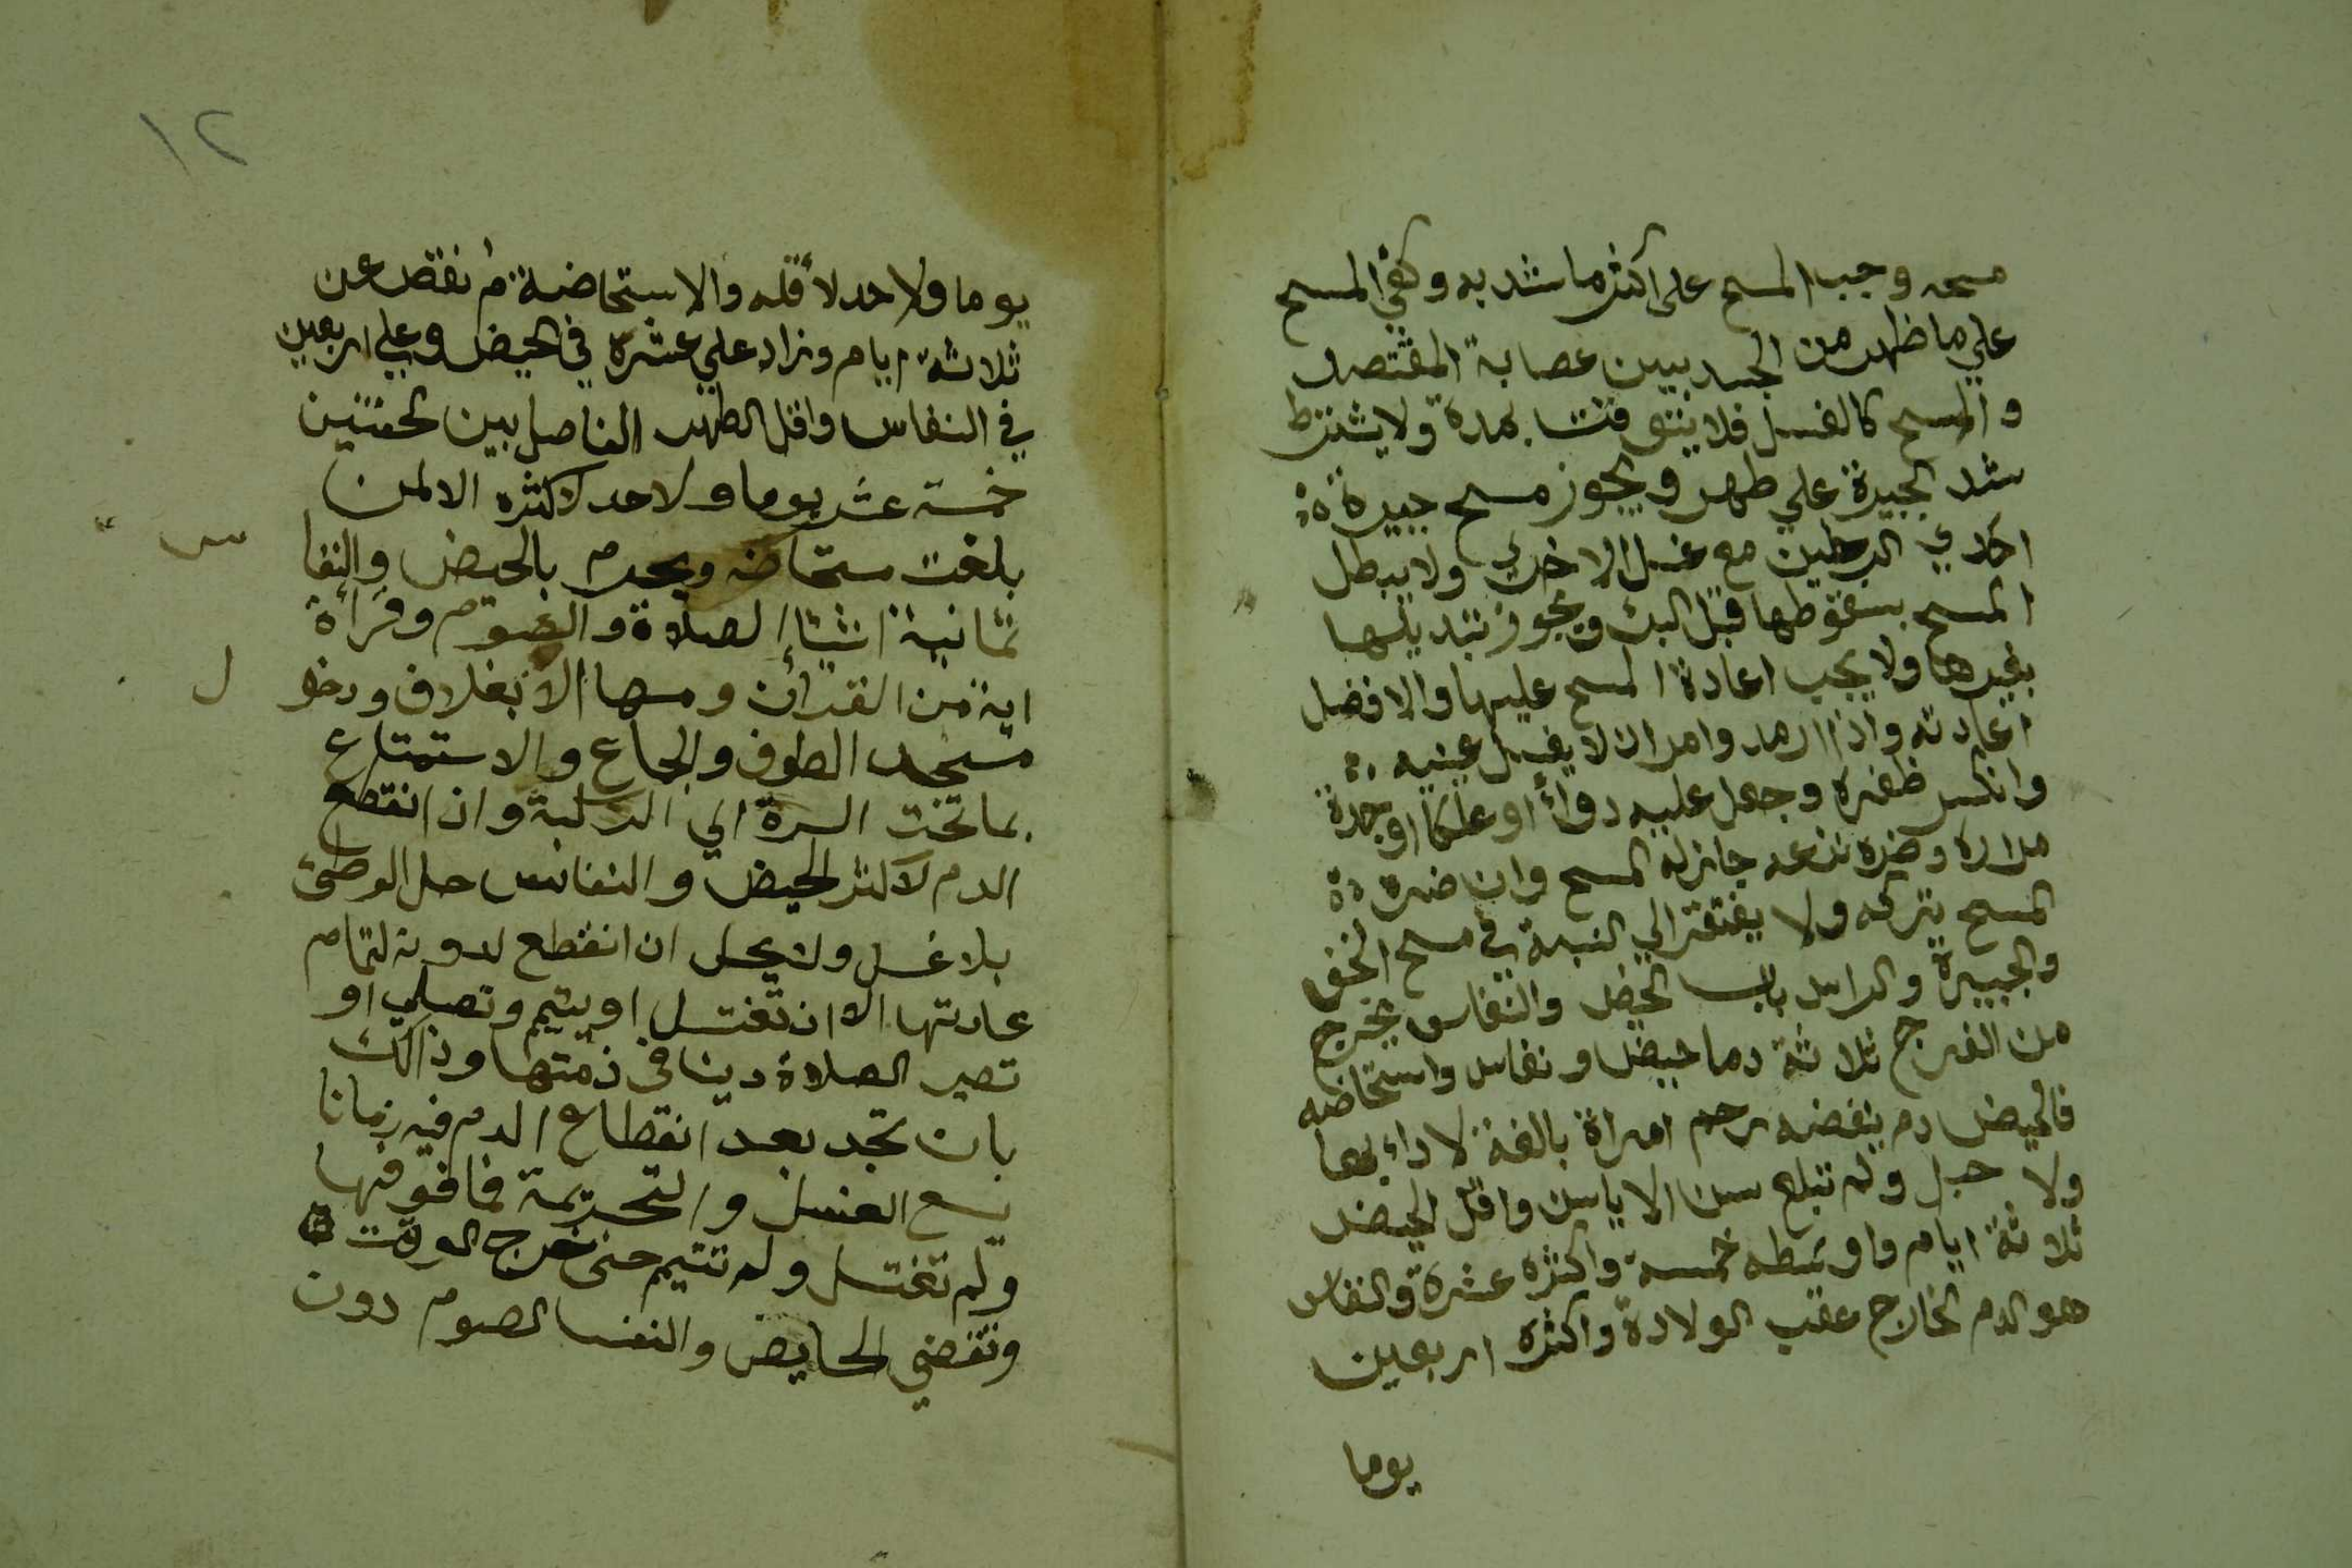 مسحه وجب المسح على اكثر ما شد به وكفي المسح
علي ما ظهر من الجسد بين عصابة المفتصد
والمسح كالغسل فلا يتوقت بمدة ولا يشترط
شد الجبيرة علي طهر ويجوز مسح جبيرة
احدي الرجلين مع غسل الاخري ولا يبطل
المسح بسقوطها قبل البرء ويجوز تبديلها
بغيرها ولا يجب اعادة المسح عليها والافضل
اعادته واذا رمد وامر ان لا يغسل عينيه
وانكسر ظفره وجعل عليه دواء او علكا او جلدة
مرارة وضره نزعه جاز له المسح وان ضره
المسح يتركه ولا يفتقر الي النية في مسح الخف
والجبيرة والراس باب الحيض والنفاس يخرج
من الفرج ثلاثة دما حيض ونفاس واستحاضه
فالحيض دم ينفضه رحم امراة بالغة لا داء بها
ولا حبل ولم تبلغ سن الاياس واقل الحيض
ثلاثة ايام واوسطه خمسة واكثره عشرة والنفاس
هو الدم الخارج عقب الولادة واكثره اربعين
يوما
١٢
يوما ولا حد لاقله والاستحاضة دم نقص عن
ثلاثة ايام وزاد علي عشرة في الحيض وعلي اربعين
في النفاس واقل الطهر الفاصل بين الحيضتين
خمسة عشر يوما ولا حد لاكثره الا لمن
بلغت مستحاضه ويحرم بالحيض والنفا س
ثمانية اشيا الصلاة والصوم وقراة
اية من القران ومسها الا بغلاف ودخو ل
مسجد الطوف والجماع والاستمتاع
بما تحت السرة الي الركبة وان انقطع
الدم لاكثر الحيض والنفاس حل الوطئ
بلا غسل ولا يحل ان انقطع لدونه لتمام
عادتها الا ان تغتسل او يتيم وتصلي او
تصير الصلاة دينا في ذمتها وذالك
بان تجد بعد انقطاع الدم فيه زمانا
يسع الغسل والتحريمة فما فوقها
ولم تغتسل ولم تتيم حتى خرج الوقت
وتقضي الحايض والنفسا الصوم دون